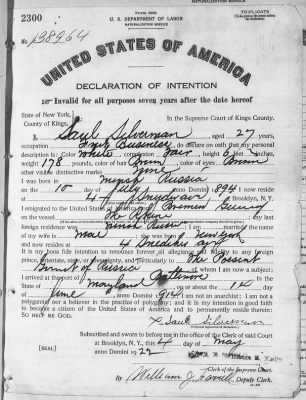 2300
Form 2202
U. S. DEPARTMENT OF LABOR
NATURALIZATION SERVICE
TRIPLICATE
No. 138964
UNITED STATES OF AMERICA
DECLARATION OF INTENTION
Invalid for all purposes seven years after the date hereof
State of New York,
County of Kings,
In the Supreme Court of Kings County.
I, Saul Silverman, aged 27 years,
occupation Business, do declare on oath that my personal
description is: Color White, complexion Fair, height feet inches,
weight 178 pounds, color of hair Brown, color of eyes Brown
other visible distinctive marks none
I was born in Minsk Russia
on the 10 day of July, anno Domini 1894; I now reside
at 4 Snediker av, Brooklyn, N. Y.
I emigrated to the United States of America from Bremen Germany
on the vessel; my last
foreign residence was Minsk Russia; I am married; the name
of my wife is Mae; she was born at New York
and now resides at 4 Snediker av
It is my bona fide intention to renounce forever all allegiance and fidelity to any foreign
prince, potentate, state, or sovereignty, and particularly to The Present
Government of Russia, of whom I am now a subject;
I arrived at the port of Baltimore, in the
State of Maryland, on or about the 14 day
of June, anno Domini 1914; I am not an anarchist; I am not a
polygamist nor a believer in the practice of polygamy; and it is my intention in good faith
to become a citizen of the United States of America and to permanently reside therein:
SO HELP ME GOD.
Saul Silverman
Subscribed and sworn to before me in the office of the Clerk of said Court
at Brooklyn, N. Y., this 4 day of May
[SEAL]
anno Domini 1922
Clerk of the Supreme Court.
By William J., Deputy Clerk.